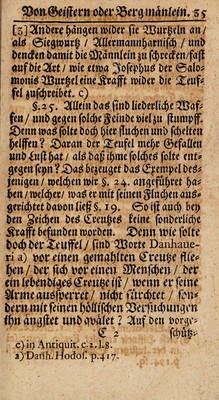 Von Geistern oder Bergmänlein. 35
[3] Andere hängen wider sie Wurtzeln an/
als Siegwurtz / Allermannharnisch / und
dencken damit die Männlein zu schrecken/fast
auf die Art / wie etwa Josephus der Salo-
monis Wurtzel eine Krafft wider die Teuf-
fel zuschreibet. c)
§. 25. Allein das sind liederliche Waf-
fen / und gegen solche Feinde viel zu stumpff.
Denn was solte doch hier fluchen und schelten
helffen? Daran der Teufel mehr Gefallen
und Lust hat / als daß ihme solches solte ent-
gegen seyn? Das bezeuget das Exempel des-
jenigen / welchen wir §. 24. angeführet ha-
ben / welcher / was er mit seinen Fluchen aus-
gerichtet davon ließ §. 19. So ist auch bey
den Zeichen des Creutzes keine sonderliche
Krafft befunden worden. Denn wie solte
doch der Teuffel / sind Worte Danhaue-
ri a) vor einen gemahlten Creutze flie-
hen / der sich vor einen Menschen / der
ein lebendiges Creutze ist / wenn er seine
Arme aussperret / nicht fürchtet / son-
dern mit seinen höllischen Versuchungen
ihn ängstet und qvälet? Auf den vorge-
C 2 schütz-
c) in Antiquit. c. 2. l. 8.
a) Danh. Hodos. p. 417.